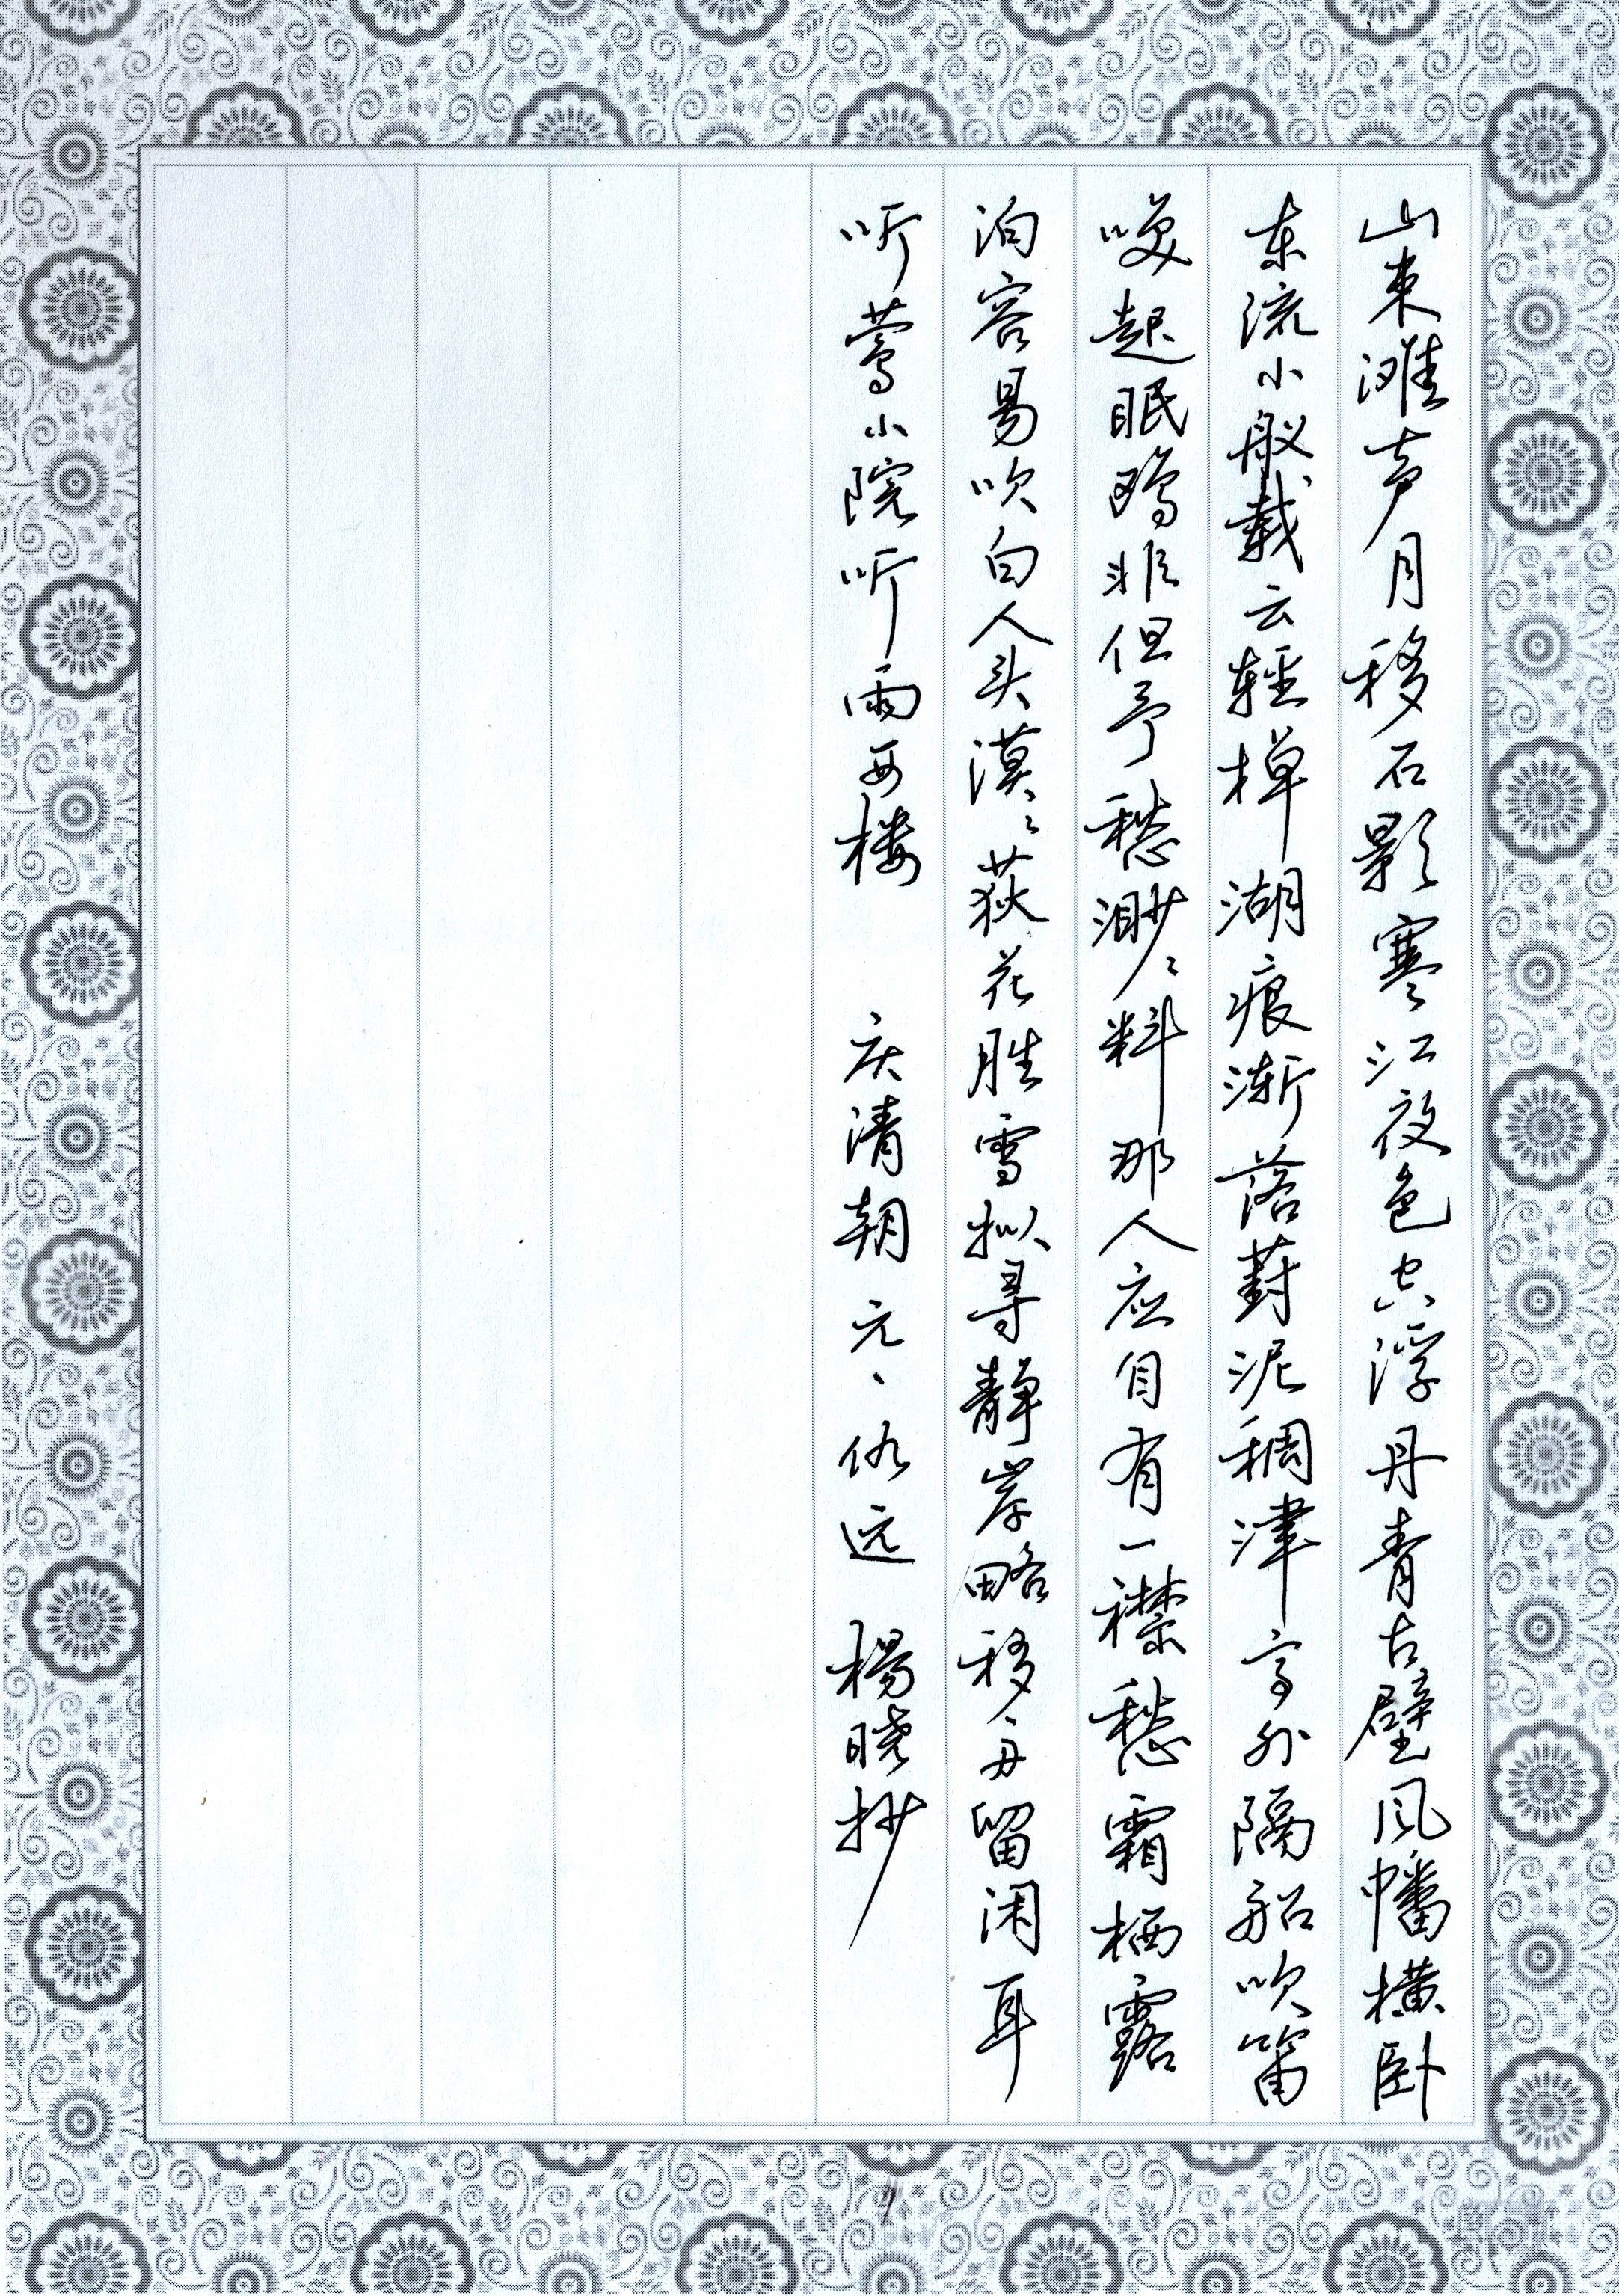 山束滩声月移石影寒江夜色空浮丹青古壁风幡横卧
东流小舣载云輕棹湖痕渐落葑泥稠津亭外隔船吹笛
唤起眠鸥非但予愁渺々料那人应自有一襟愁霜栖露
泊容易吹白人头漠々荻花胜雪拟寻静岸略移舟留闲耳
听莺小院听雨西楼 庆清朝 元、仇远 楊晓抄